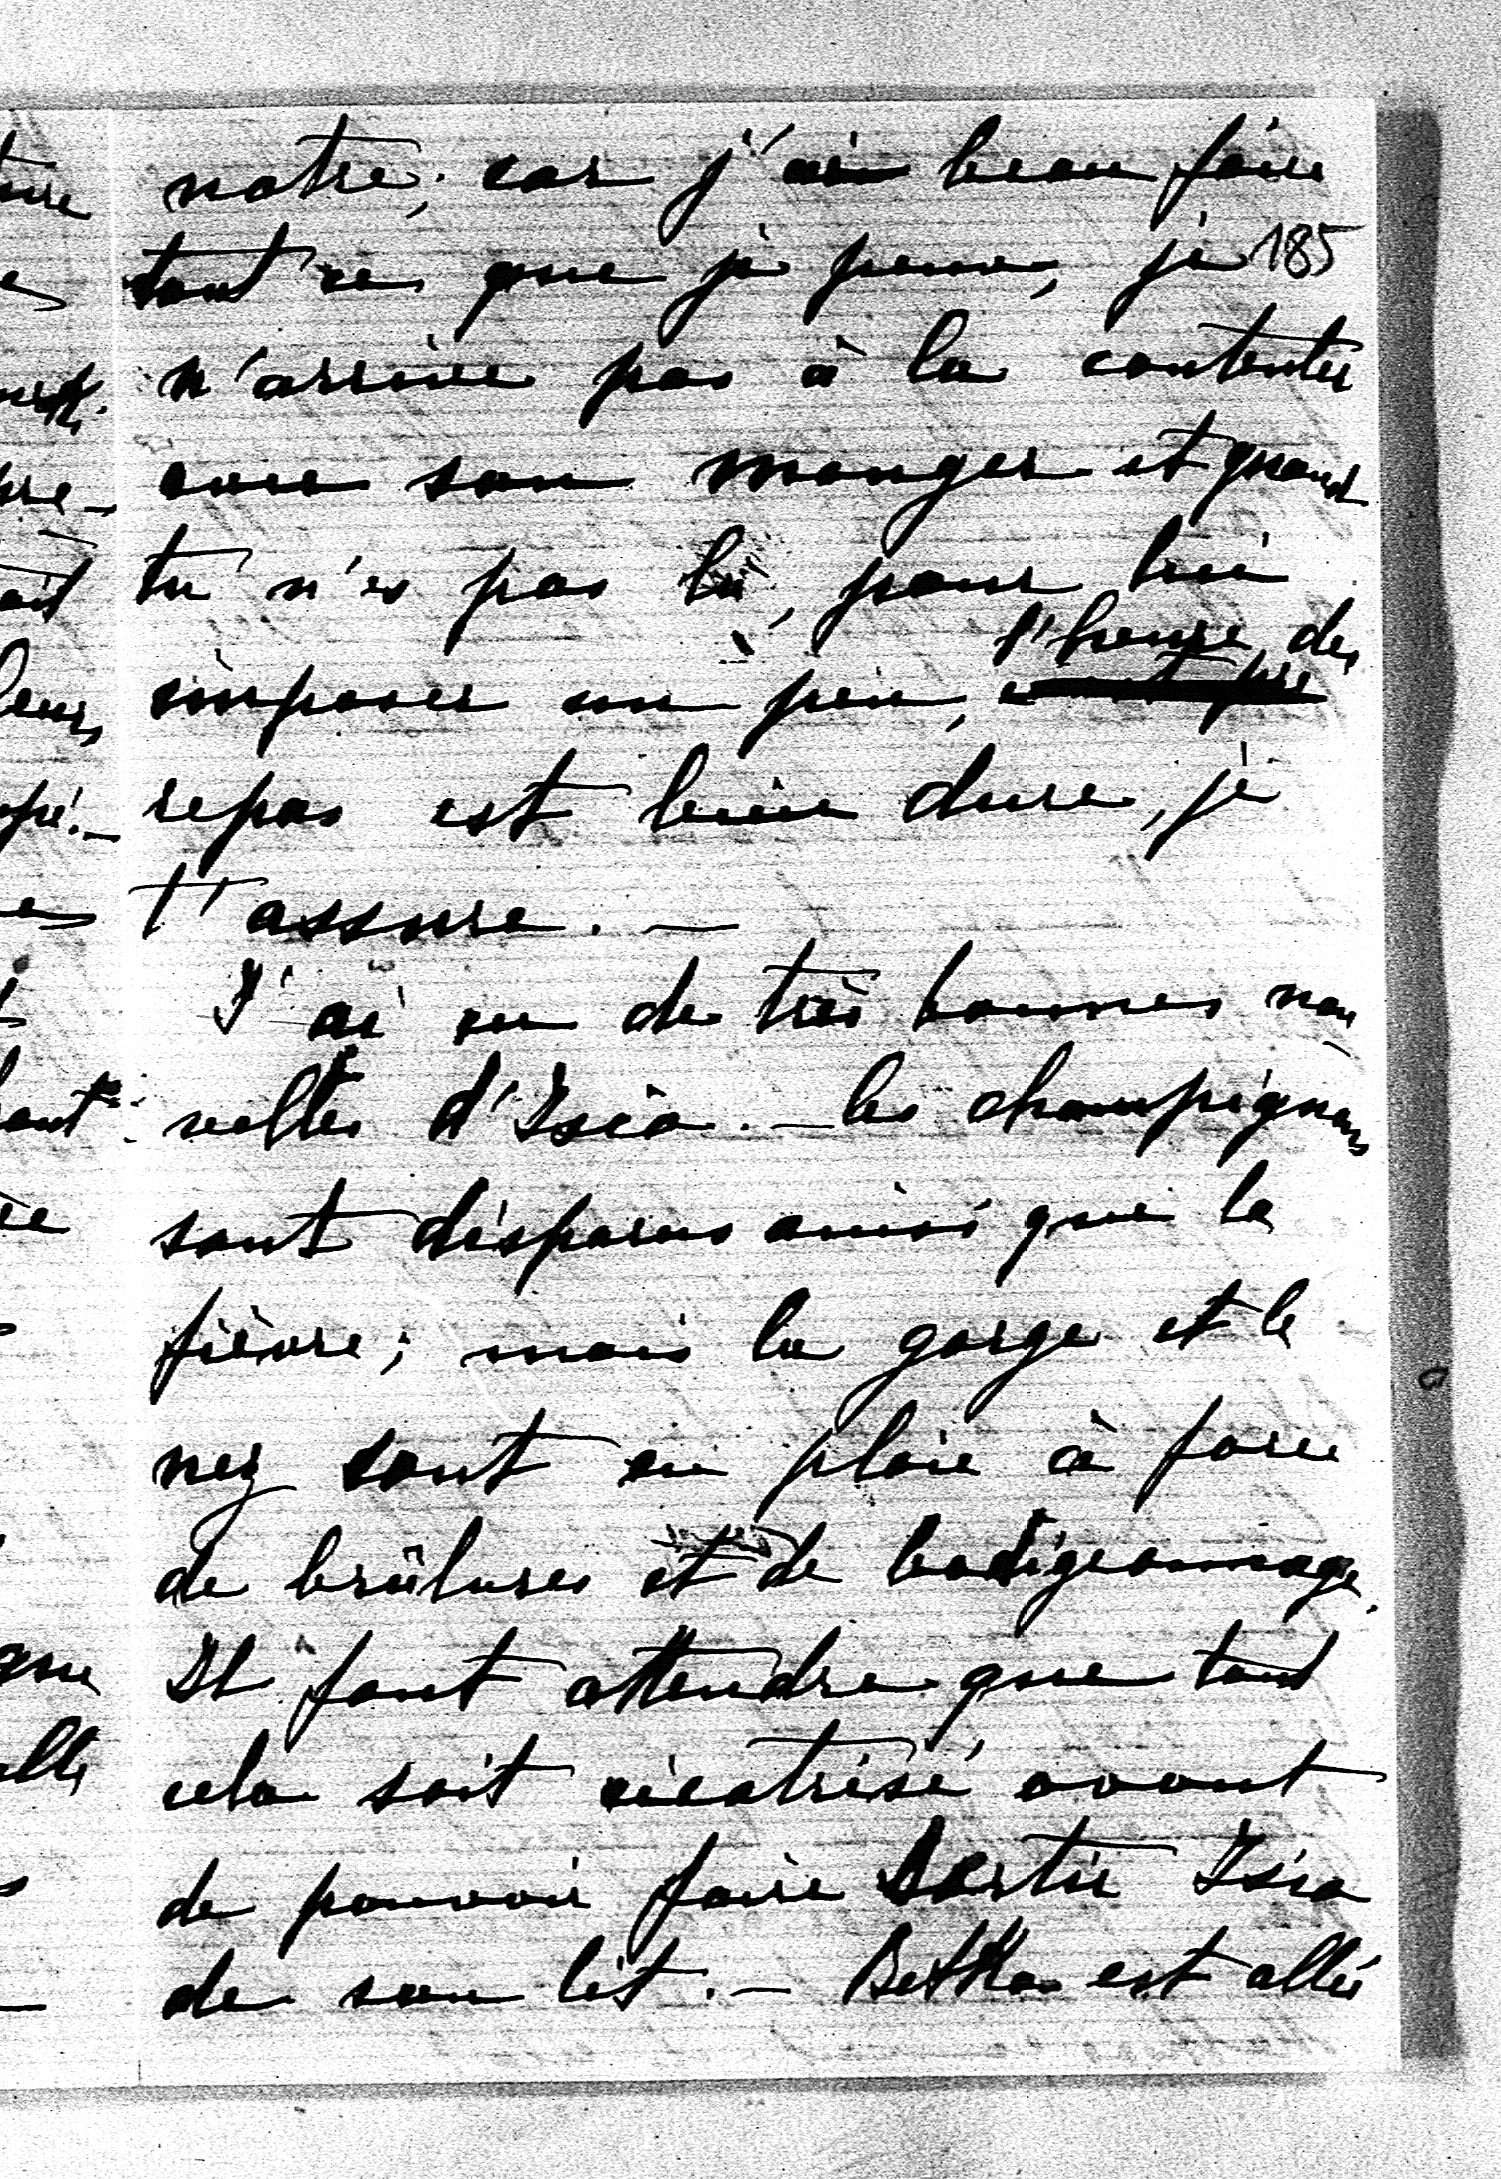 notre; car j'ai beau faire
tout ce que je peux, je
185
n'arrive pas à la contenter
avec son manger et quand
tu n'es pas là, pour lui
imposer un peu, l'heure des
repas est bien dure, je
t'assure. —
J'ai eu de très bonnes nou
velles d'Isia. — les champignons
sont disparus ainsi que la
fièvre; mais la gorge et le
nez sont en plaie à force
de brûlures et de badigeonnage.
Il faut attendre que tout
cela soit cicatrisé avant
de pouvoir faire sortir Isia
de son lit. — Betka est allée